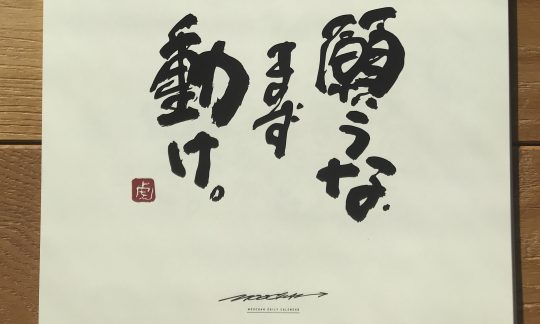 願うな
まず
動け。
虎
DAILY CALENDAR